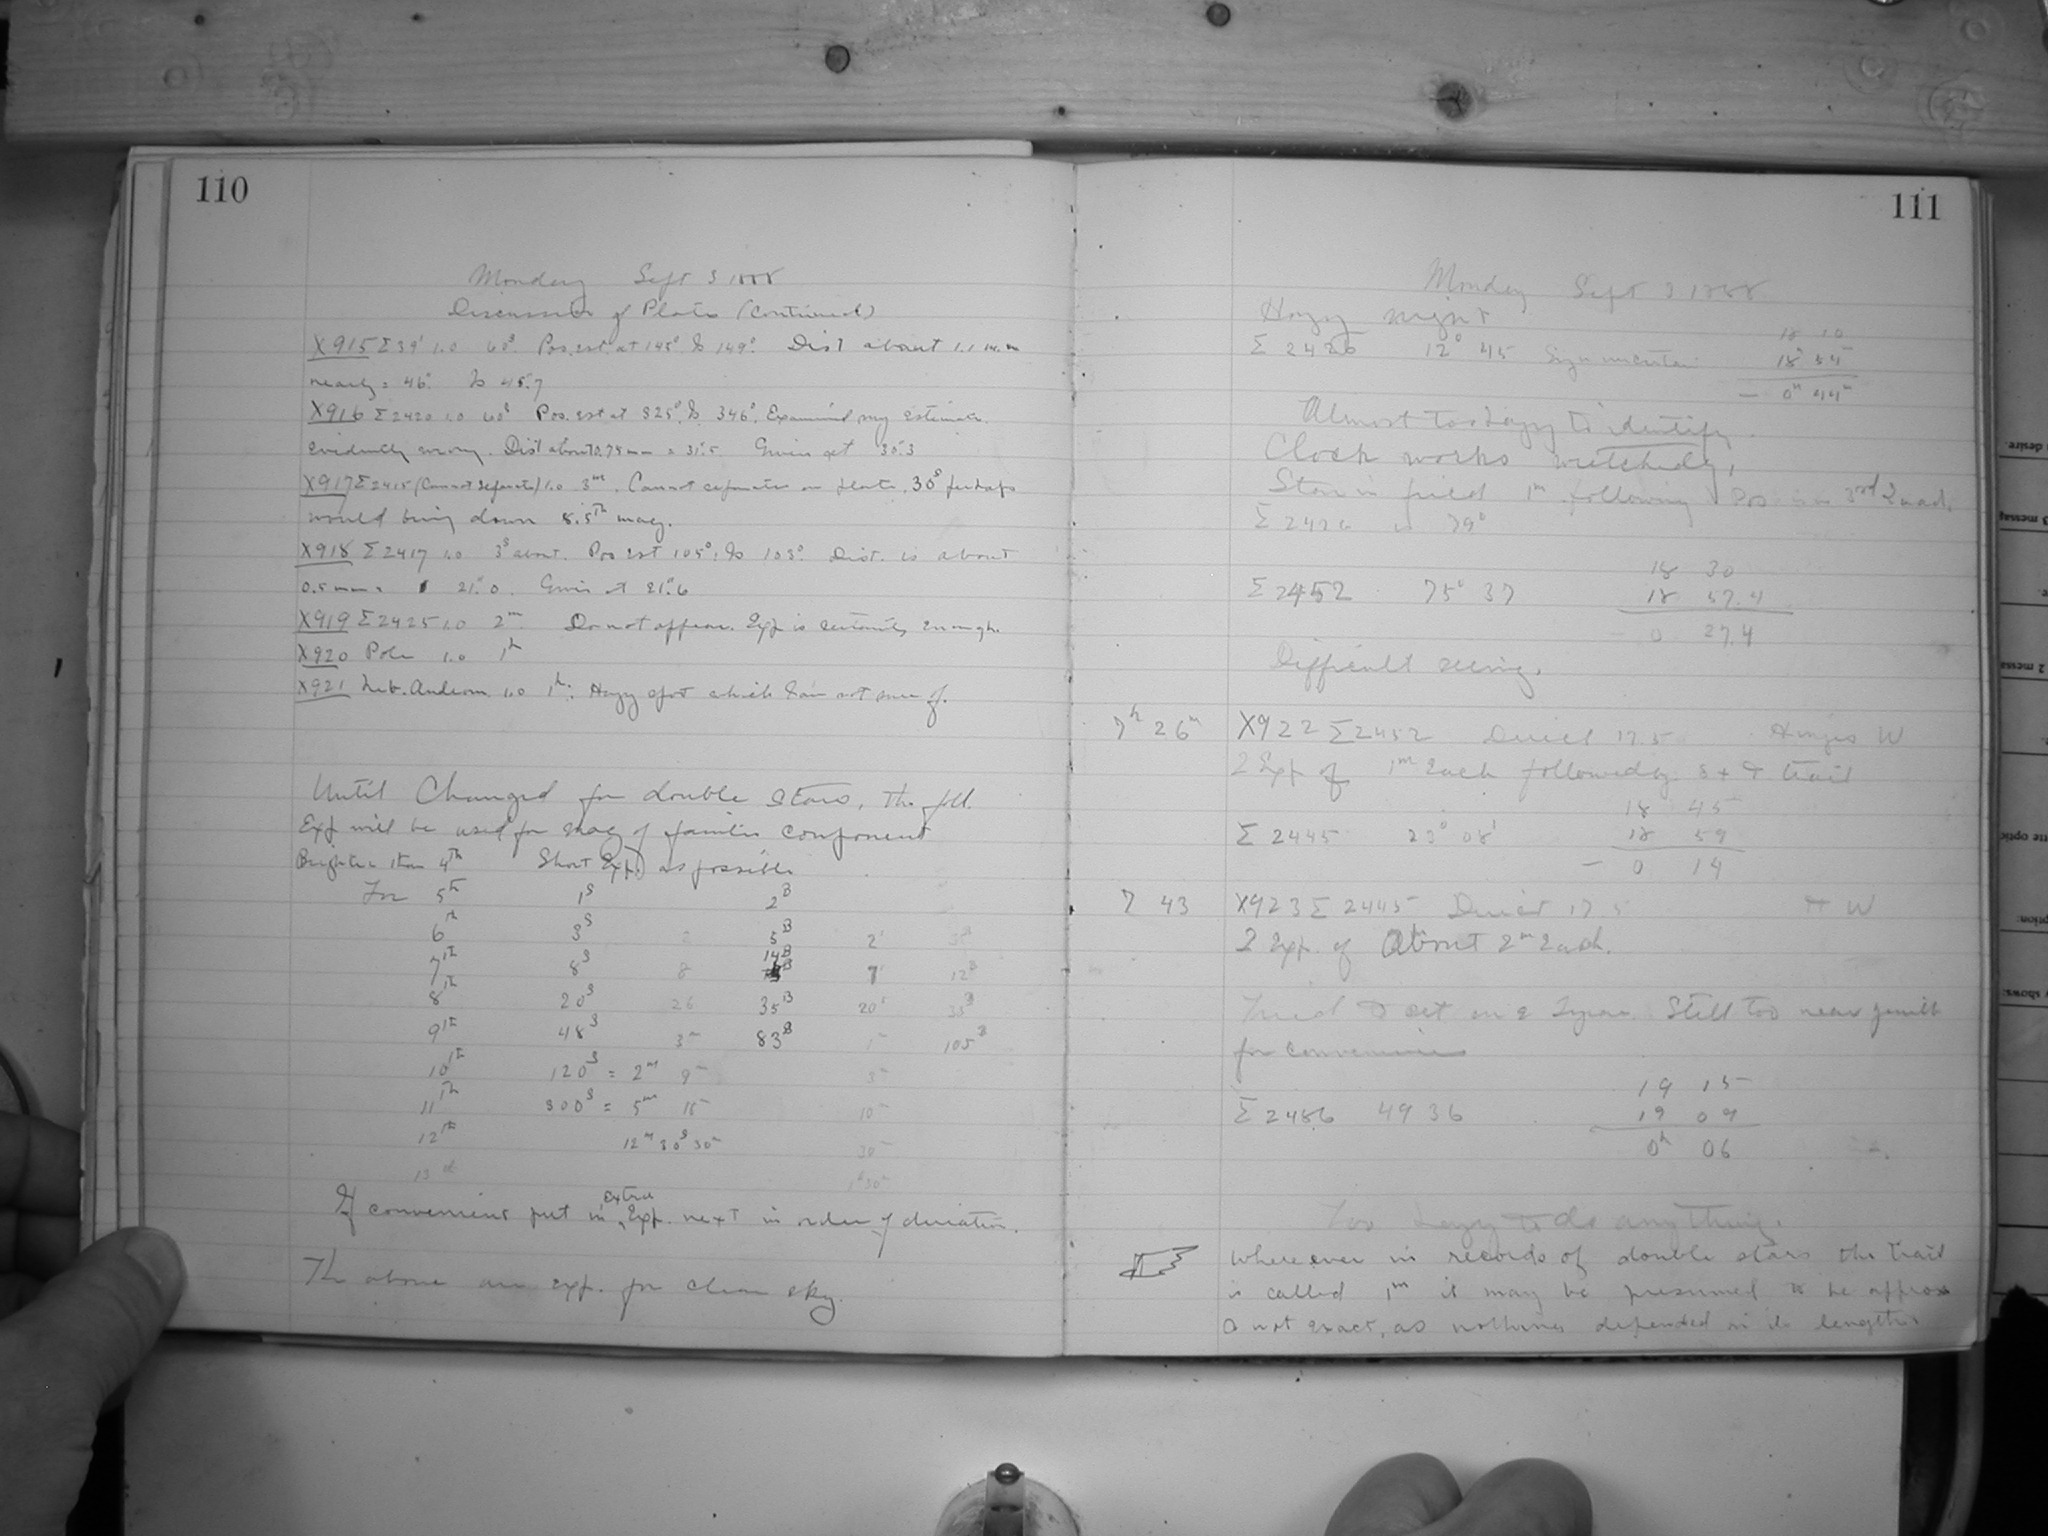 110
Monday Sept 3 1888
Discussion of Plates (Continued)
X915 Σ39' 1.0 60s. Pos. est. at 145°. Is 149°. Dist about 1.1 m.m
nearly = 46". Is 45".7
X916 Σ2420 1.0 60s Pos. est at 325°. Is 346°. Examined my estimate
evidently wrong. Dist about 0.75 mm = 31".5 Given at 30".3
X917 Σ2415 (Cannot separate) 1.0 3m. Cannot separate on plate. 30s perhaps
would bring down 8.5th mag.
X918 Σ2417 1.0 3s about. Pos est 105°. Is 103°. Dist. is about
0.5 mm = 21".0. Given at 21".6
X919 Σ2425 1.0 2m Do not appear. Exp is certainly enough.
X920 Pole 1.0 1h
X921 Neb. Androm 1.0 1h. Hazy spot which I am not sure of.
Until Changed for double stars, the foll.
Exp will be used for mag of fainter component
Brighter than 4th Short Exp. as possible
For 5th 1s 2B
6th 3s 5B 2s
7th 8s 8 14B 7s 12B
8th 20s 26 35B 20s 33B
9th 48s 3m 83B 1m 105B
10th 120s = 2m 9m 3m
11th 300s = 5m 15 10m
12th 12m 30s 30m 30m
13th 1h30m
If convenient put in extra Exp. next in order of duration.
The above are exp. for clear sky.
111
Monday Sept 3 1888
Hazy night
18 10
Σ 2420 12° 45 Sign uncertain 18 54
- 0h 44m
Almost too hazy to identify
Clock works wretchedly.
Star in field 1m following Pos. is in 3rd Quad.
Σ 2426 is 79°
18 30
Σ 2452 75° 37 18 57.4
0 27.4
Difficult seeing.
7h 26m X922 Σ2452 Driest 17.5 Hinges W
2 Exp of 1m each followed by S + T trail
18 45
Σ 2445 23° 08' 18 59
- 0 14
7 43 X923 Σ 2445 Driest 17.5 H W
2 Exp. of About 2m Each.
Tried to set on ε Lyrae. Still too near zenith
for convenience
19 15
Σ 2486 49 36 19 09
0h 06
Too hazy to do anything.
Whereever in records of double stars the trail
is called 1m it may be presumed to be approx
& not exact, as nothing depended on its length